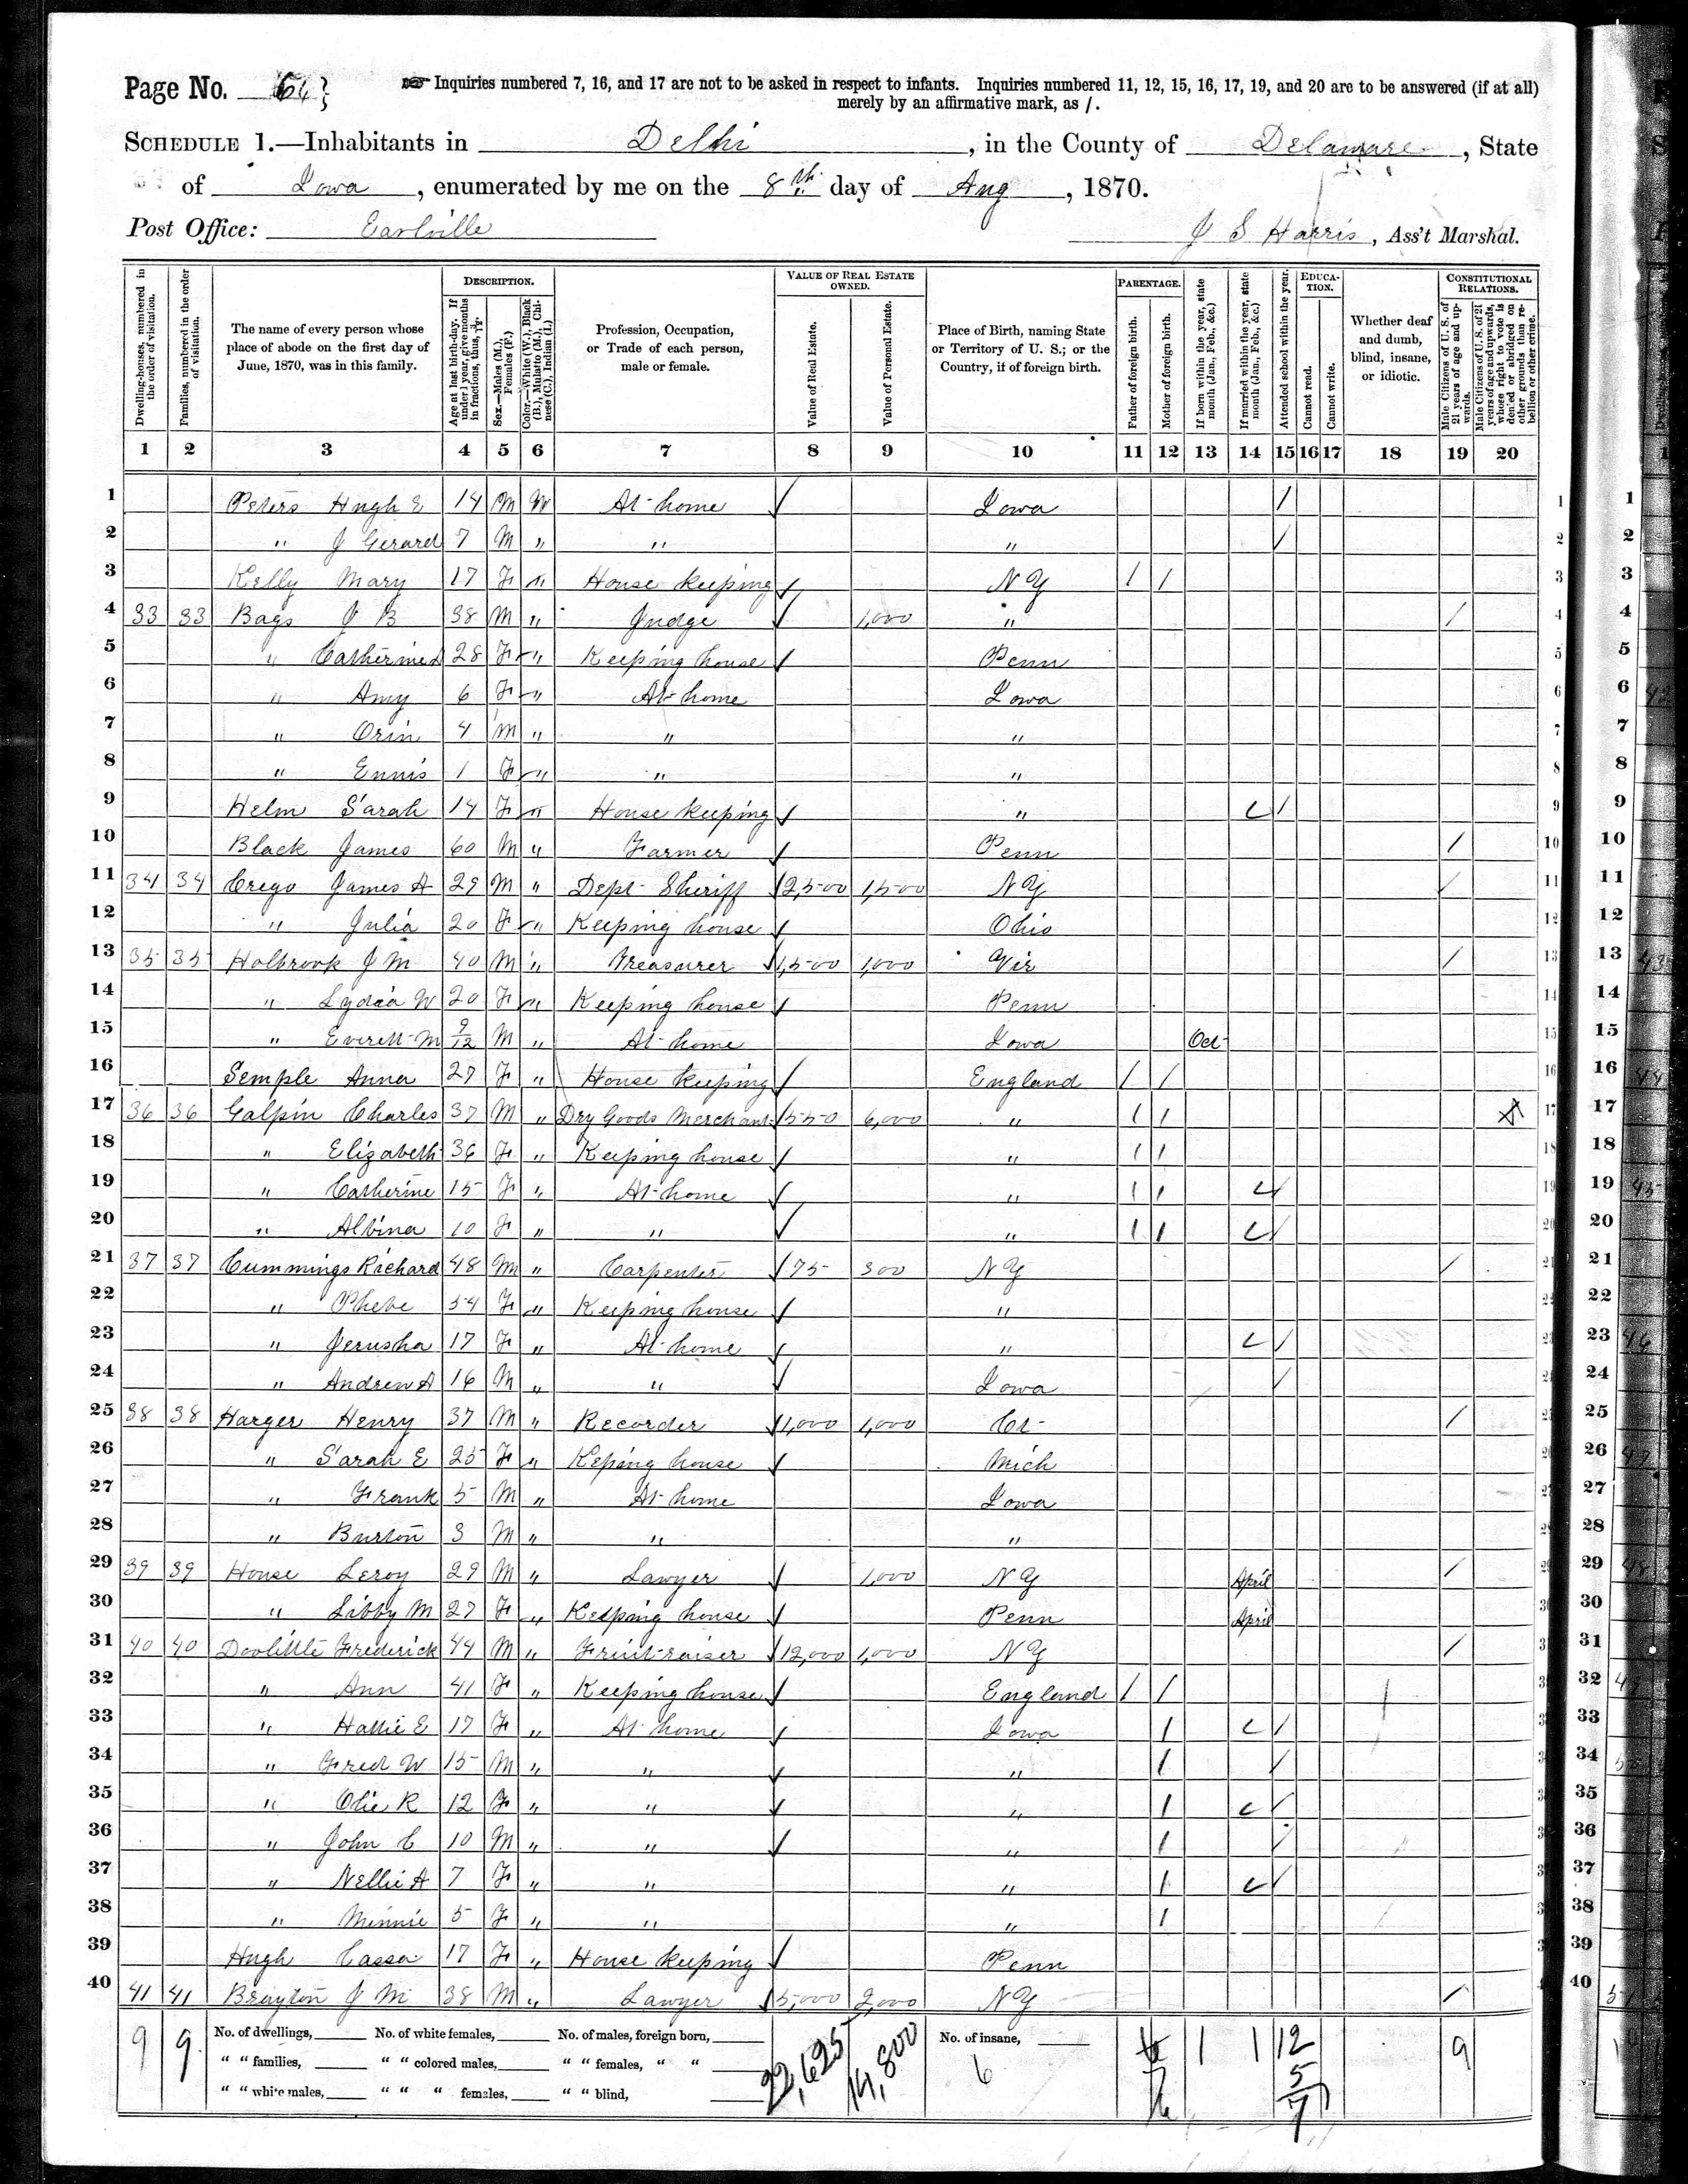 Page No. 66}
☞ Inquiries numbered 7, 16, and 17 are not to be asked in respect to infants. Inquiries numbered 11, 12, 15, 16, 17, 19, and 20 are to be answered (if at all)
merely by an affirmative mark, as /.
SCHEDULE 1.—Inhabitants in Delhi, in the County of Delaware, State
of Iowa, enumerated by me on the 8th day of Aug, 1870.
Post Office: Earlville
J S Harris, Ass't Marshal.
Dwelling-houses, numbered in the order of visitation.
Families, numbered in the order of visitation.
The name of every person whose place of abode on the first day of June, 1870, was in this family.
DESCRIPTION.
Age at last birth-day. If under 1 year, give months in fractions, thus, 3/12.
Sex.—Males (M.), Females (F.)
Color.—White (W.), Black (B.), Mulatto (M.), Chinese (C.), Indian (I.)
Profession, Occupation, or Trade of each person, male or female.
VALUE OF REAL ESTATE OWNED.
Value of Real Estate.
Value of Personal Estate.
Place of Birth, naming State or Territory of U. S.; or the Country, if of foreign birth.
PARENTAGE.
Father of foreign birth.
Mother of foreign birth.
If born within the year, state month (Jan., Feb., &c.)
If married within the year, state month (Jan., Feb., &c.)
Attended school within the year.
EDUCATION.
Cannot read.
Cannot write.
Whether deaf and dumb, blind, insane, or idiotic.
CONSTITUTIONAL RELATIONS.
Male Citizens of U. S. of 21 years of age and upwards.
Male Citizens of U. S. of 21 years of age and upwards, whose right to vote is denied or abridged on other grounds than rebellion or other crime.
1 2 3 4 5 6 7 8 9 10 11 12 13 14 15 16 17 18 19 20
1 Peters Hugh E 14 M W At home ✓ Iowa / 1
2 " J Gerard 7 M " " " / 2
3 Kelly Mary 17 F " House keeping ✓ N Y / / 3
4 33 33 Bags J B 38 M " Judge ✓ 1,000 " / 4
5 " Catherine L 28 F " Keeping house ✓ Penn 5
6 " Amy 6 F " At home Iowa 6
7 " Orin 4 M " " " 7
8 " Ennis 1 F " " " 8
9 Helm Sarah 14 F " House keeping ✓ " / 9
10 Black James 60 M " Farmer ✓ Penn / 10
11 34 34 Crego James A 29 M " Dept Sheriff ✓ 2,500 1,500 N Y / 11
12 " Julia 20 F " Keeping house ✓ Ohio 12
13 35 35 Holbrook J M 40 M " Treasurer ✓ 1,500 1,000 Vir / 13
14 " Lydia W 20 F " Keeping house ✓ Penn 14
15 " Everett M 9/12 M " At home Iowa Oct 15
16 Semple Anna 27 F " House keeping ✓ England / / 16
17 36 36 Galpin Charles 37 M " Dry Goods Merchant ✓ 550 6,000 " / / 17
18 " Elizabeth 36 F " Keeping house ✓ " / / 18
19 " Catherine 15 F " At home ✓ " / / / 19
20 " Albina 10 F " " ✓ " / / / 20
21 37 37 Cummings Richard 48 M " Carpenter ✓ 75 300 N Y / 21
22 " Phebe 54 F " Keeping house ✓ "
23 " Jerusha 17 F " At home ✓ " /
24 " Andrew A 16 M " " ✓ Iowa /
25 38 38 Harger Henry 37 M " Recorder ✓ 1,000 1,000 Ct /
26 " Sarah E 25 F " Keping house ✓ Mich
27 " Frank 5 M " At home Iowa
28 " Burton 3 M " " "
29 39 39 House Leroy 29 M " Lawyer ✓ 1,000 N Y April /
30 " Libby M 27 F " Keeping house ✓ Penn April
31 40 40 Doolittle Frederick 44 M " Fruit raiser ✓ 12,000 1,000 N Y /
32 " Ann 41 F " Keeping house ✓ England / /
33 " Hattie E 17 F " At home ✓ Iowa / /
34 " Fred W 15 M " " ✓ " / /
35 " Olie R 12 F " " ✓ " / /
36 " John C 10 M " " ✓ " / /
37 " Nellie A 7 F " " " / /
38 " Minnie 5 F " " " /
39 Hugh Cassa 17 F " House keeping ✓ Penn
40 41 41 Brayton J M 38 M " Lawyer ✓ 5,000 2,000 N Y /
9 9 No. of dwellings, No. of white females, No. of males, foreign born, 22,625 14,800 No. of insane, 6 1 1 12 9
" " families, " " colored males, " " females, " " 6 5
" " white males, " " " females, " " blind, 7